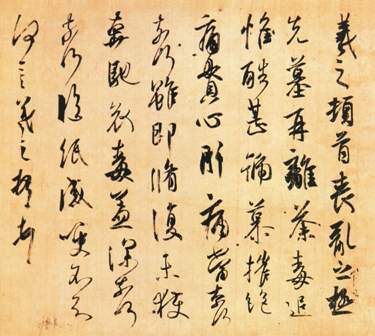 羲之頓首喪亂之極
先墓再離荼毒追
惟酷甚號慕摧絶
痛貫心肝痛當奈何
奈何雖即脩復未獲
奔馳哀毒益深奈何
奈何臨紙感哽不知
何言羲之頓首頓首